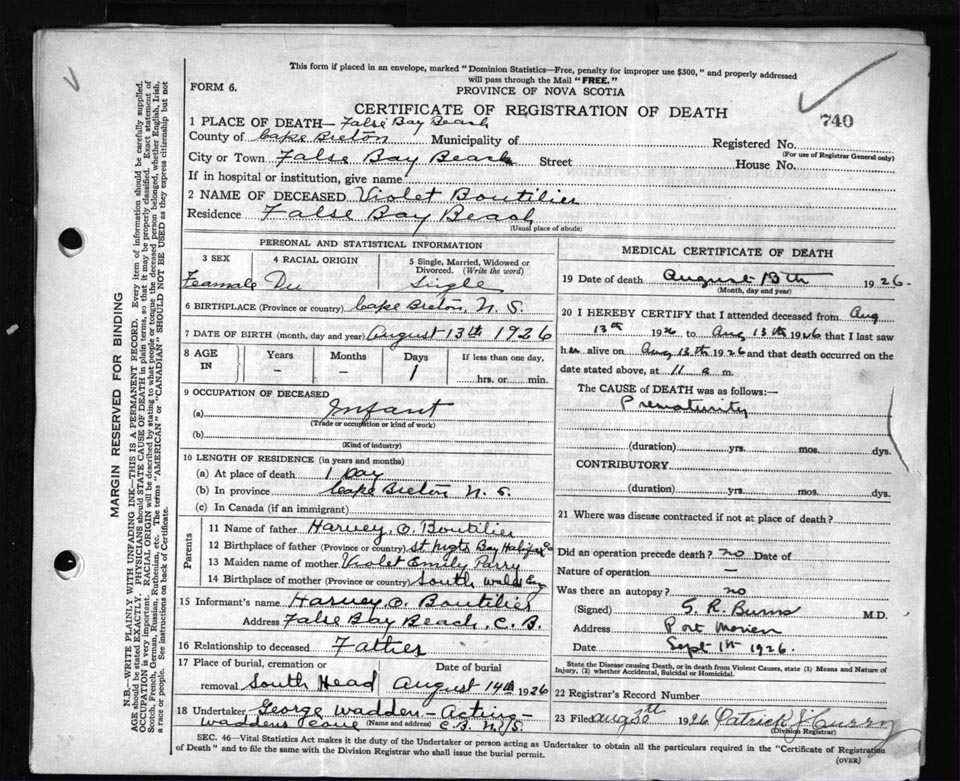 This form if placed in an envelope, marked "Dominion Statistics—Free, penalty for improper use $300," and properly addressed
will pass through the Mail "FREE."
FORM 6.
PROVINCE OF NOVA SCOTIA
CERTIFICATE OF REGISTRATION OF DEATH
740
1 PLACE OF DEATH— False Bay Beach
County of Cape Breton Municipality of Registered No.
(For use of Registrar General only)
City or Town False Bay Beach Street House No.
If in hospital or institution, give name
2 NAME OF DECEASED Violet Boutilier
Residence False Bay Beach
(Usual place of abode)
PERSONAL AND STATISTICAL INFORMATION
3 SEX 4 RACIAL ORIGIN 5 Single, Married, Widowed or
Divorced. (Write the word)
Feamale Du Single
6 BIRTHPLACE (Province or country) Cape Breton, N. S.
7 DATE OF BIRTH (month, day and year) August 13th 1926
8 AGE IN Years Months Days If less than one day,
– – 1 hrs. or min.
9 OCCUPATION OF DECEASED
(a) Infant
(Trade or occupation or kind of work)
(b)
(Kind of industry)
10 LENGTH OF RESIDENCE (in years and months)
(a) At place of death 1 Day
(b) In province Cape Breton N. S.
(c) In Canada (if an immigrant)
Parents
11 Name of father Harvey O. Boutilier
12 Birthplace of father (Province or country) St Mgts Bay Halifax Co
13 Maiden name of mother Violet Emily Parry
14 Birthplace of mother (Province or country) South Wales Eng
15 Informant's name Harvey O. Boutilier
Address False Bay Beach, C. B.
16 Relationship to deceased Father
17 Place of burial, cremation or Date of burial
removal South Head August 14th 1926
18 Undertaker, George Wadden – Acting
Waddens Cove (Name and address) C. B. N. S.
MEDICAL CERTIFICATE OF DEATH
19 Date of death August 13th 1926.
(Month, day and year)
20 I HEREBY CERTIFY that I attended deceased from Aug
13th 1926 to Aug 13th 1926 that I last saw
her alive on Aug 13th 1926 and that death occurred on the
date stated above, at 11 a m.
The CAUSE of DEATH was as follows:—
Prematurity
(duration) yrs. mos. dys.
CONTRIBUTORY
(duration) yrs. mos. dys.
21 Where was disease contracted if not at place of death?
Did an operation precede death? no Date of
Nature of operation —
Was there an autopsy? no
(Signed) G. R. Burns M.D.
Address Port Morien
Date Sept 1st 1926.
State the Disease causing Death, or in death from Violent Causes, state (1) Means and Nature of
Injury, (2) whether Accidental, Suicidal or Homicidal.
22 Registrar's Record Number
23 Filed 1926 Patrick J Curry
(Division Registrar)
SEC. 46—Vital Statistics Act makes it the duty of the Undertaker or person acting as Undertaker to obtain all the particulars required in the "Certificate of Registration
of Death" and to file the same with the Division Registrar who shall issue the burial permit.
(OVER)
MARGIN RESERVED FOR BINDING
N.B.—WRITE PLAINLY WITH UNFADING INK—THIS IS A PERMANENT RECORD. Every item of information should be carefully supplied.
AGE should be stated EXACTLY. PHYSICIANS should STATE CAUSE OF DEATH in plain terms, so that it may be properly classified. Exact statement of
OCCUPATION is very important. RACIAL ORIGIN will be described by stating to what people or tongue the deceased person belonged, whether English, Irish,
Scotch, French, German, Russian, Ruthenian, etc. The terms "AMERICAN" or "CANADIAN" SHOULD NOT BE USED as they express citizenship but not
a race or people. See instructions on back of Certificate.